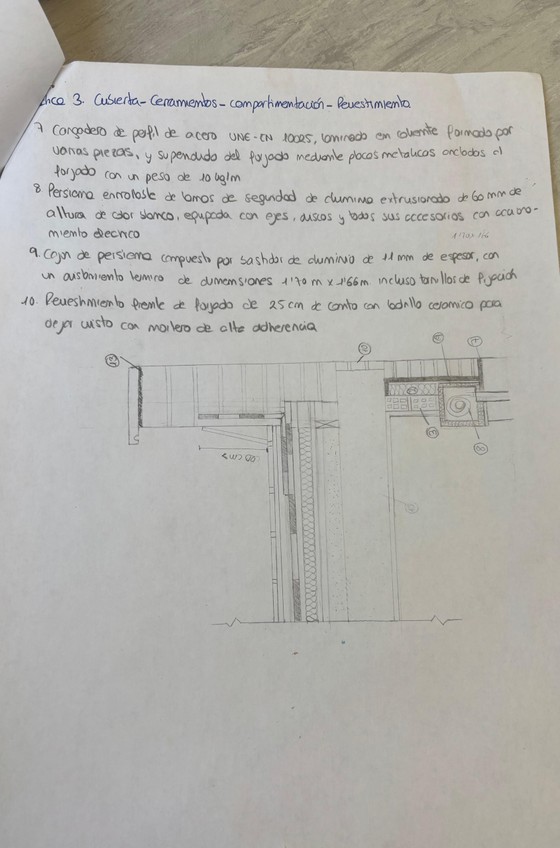 3. Cubierta - Cerramientos - compartimentación - Revestimiento
7 Cargadero de perfil de acero UNE-EN 10025, laminado en caliente formado por
varias piezas, y suspendido del forjado mediante placas metalicas ancladas al
forjado con un peso de 10 kg/m
8 Persiana enrollable de lamas de seguridad de aluminio extrusionado de 60 mm de
altura de color blanco, equipada con ejes, discos y todos sus accesorios con acciona-
miento electrico
9. Cajon de persiana compuesto por de aluminio de 11 mm de espesor, con
un aislamiento termico de dimensiones 1'70 m x 1'66 m incluso tornillos de fijación
10. Revestimiento frente de forjado de 25 cm de canto con ladrillo ceramico para
dejar visto con mortero de alta adherencia